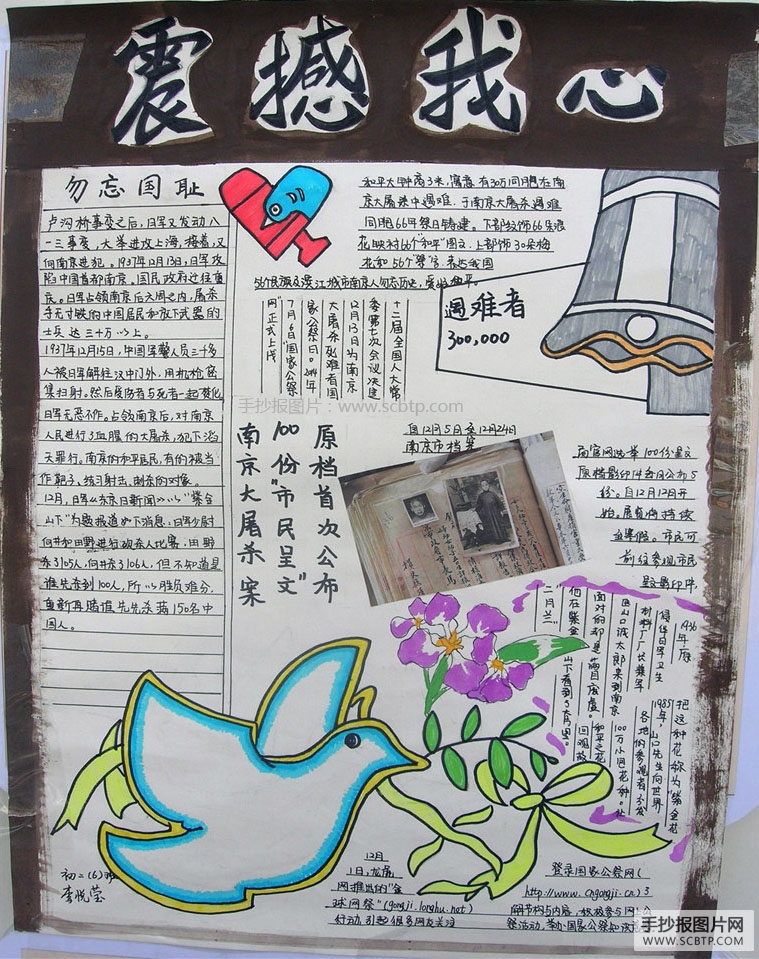 震撼我心
勿忘国耻
卢沟桥事变之后,日军又发动八
一三事变,大举进攻上海,接着,又
向南京进犯。1937年12月13日,日军攻
陷中国首都南京。国民政府迁往重
庆。日军占领南京后六周之内,屠杀
手无寸铁的中国居民和放下武器的
士兵达三十万以上。
1937年12月15日,中国军警人员三千多
人被日军解往汉中门外,用机枪密
集扫射。然后复伤者与死者一起焚化
日军无恶不作。占领南京后,对南京
人民进行了血腥的大屠杀,犯下滔
天罪行。南京的和平居民,有的被当
作靶子,练习射击,刺杀的对象。
12月,日军《东京日新闻》以"紫金
山下"为题报道如下消息,日军少尉
向井和田野进行砍杀人比赛,田野
杀了105人,向井杀了106人,但不知道是
谁先杀到100人,所以胜负难分,
重新再赌谁先杀满150名中
国人。
和平大钟高3米,寓意有30万同胞在南
京大屠杀中遇难,于南京大屠杀遇难
同胞66年祭日铸建。下部纹饰66朵浪
花映衬66个"和平"图文,上部饰30朵梅
花和56个
56个民族及滨江城市南京人勿忘历史,爱好和平。
遇难者
300,000
十二届全国人大常
委第七次会议决定
12月13日为南京
大屠杀死难者国
家公祭日。2014年
7月6日"国家公祭
网"正式上线
原档首次公布
100份"市民呈文"
南京大屠杀案
自12月5日至12月24日
南京市档案
局官网选举100份呈文
原档影印件每日公布5
份。自12月12日开
始。展览将持续
至寒假。市民可
前往参观市民
呈文影印件。
1939年原
侵华日军卫生
材料厂厂长兼军
医山口诚太郎来到南京
面对的却是满目疮痍。
他在紫金山下看到了大片
二月兰。
把这种花称为"紫金花
1985年,山口先生向世界
各地的参观者分发
100万小包花种。让
和平之花
初二(6)班
李悦莹
12月
1日,龙虎
网推出的"全
球网祭"(gongji.longhu.net)
行动,引起很多网友关注
登录国家公祭网(
http://www.cngongji.cn)3
解节构与内容,积极参与网上公
祭活动,举办国家公祭知识
手抄报图片:www.scbtp.com
手抄报图片网
WWW.SCBTP.COM